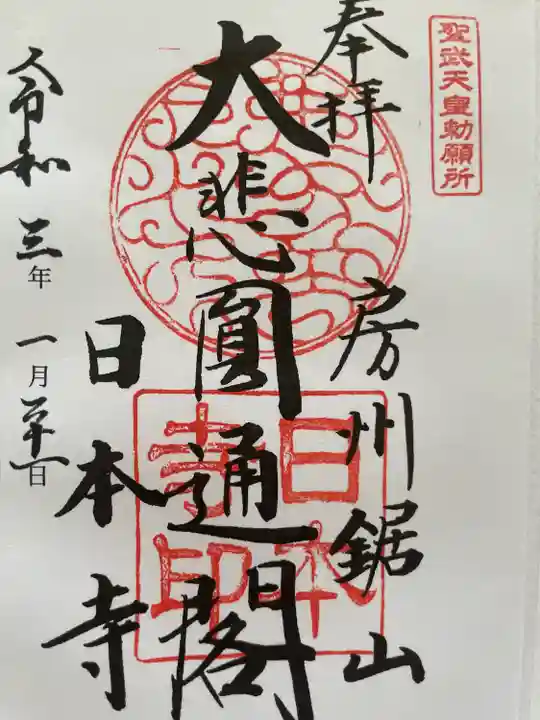 聖武天皇勅願所
奉拝
房州鋸山
大悲圓通閣
日本寺
日本寺印
令和三年一月二十一日